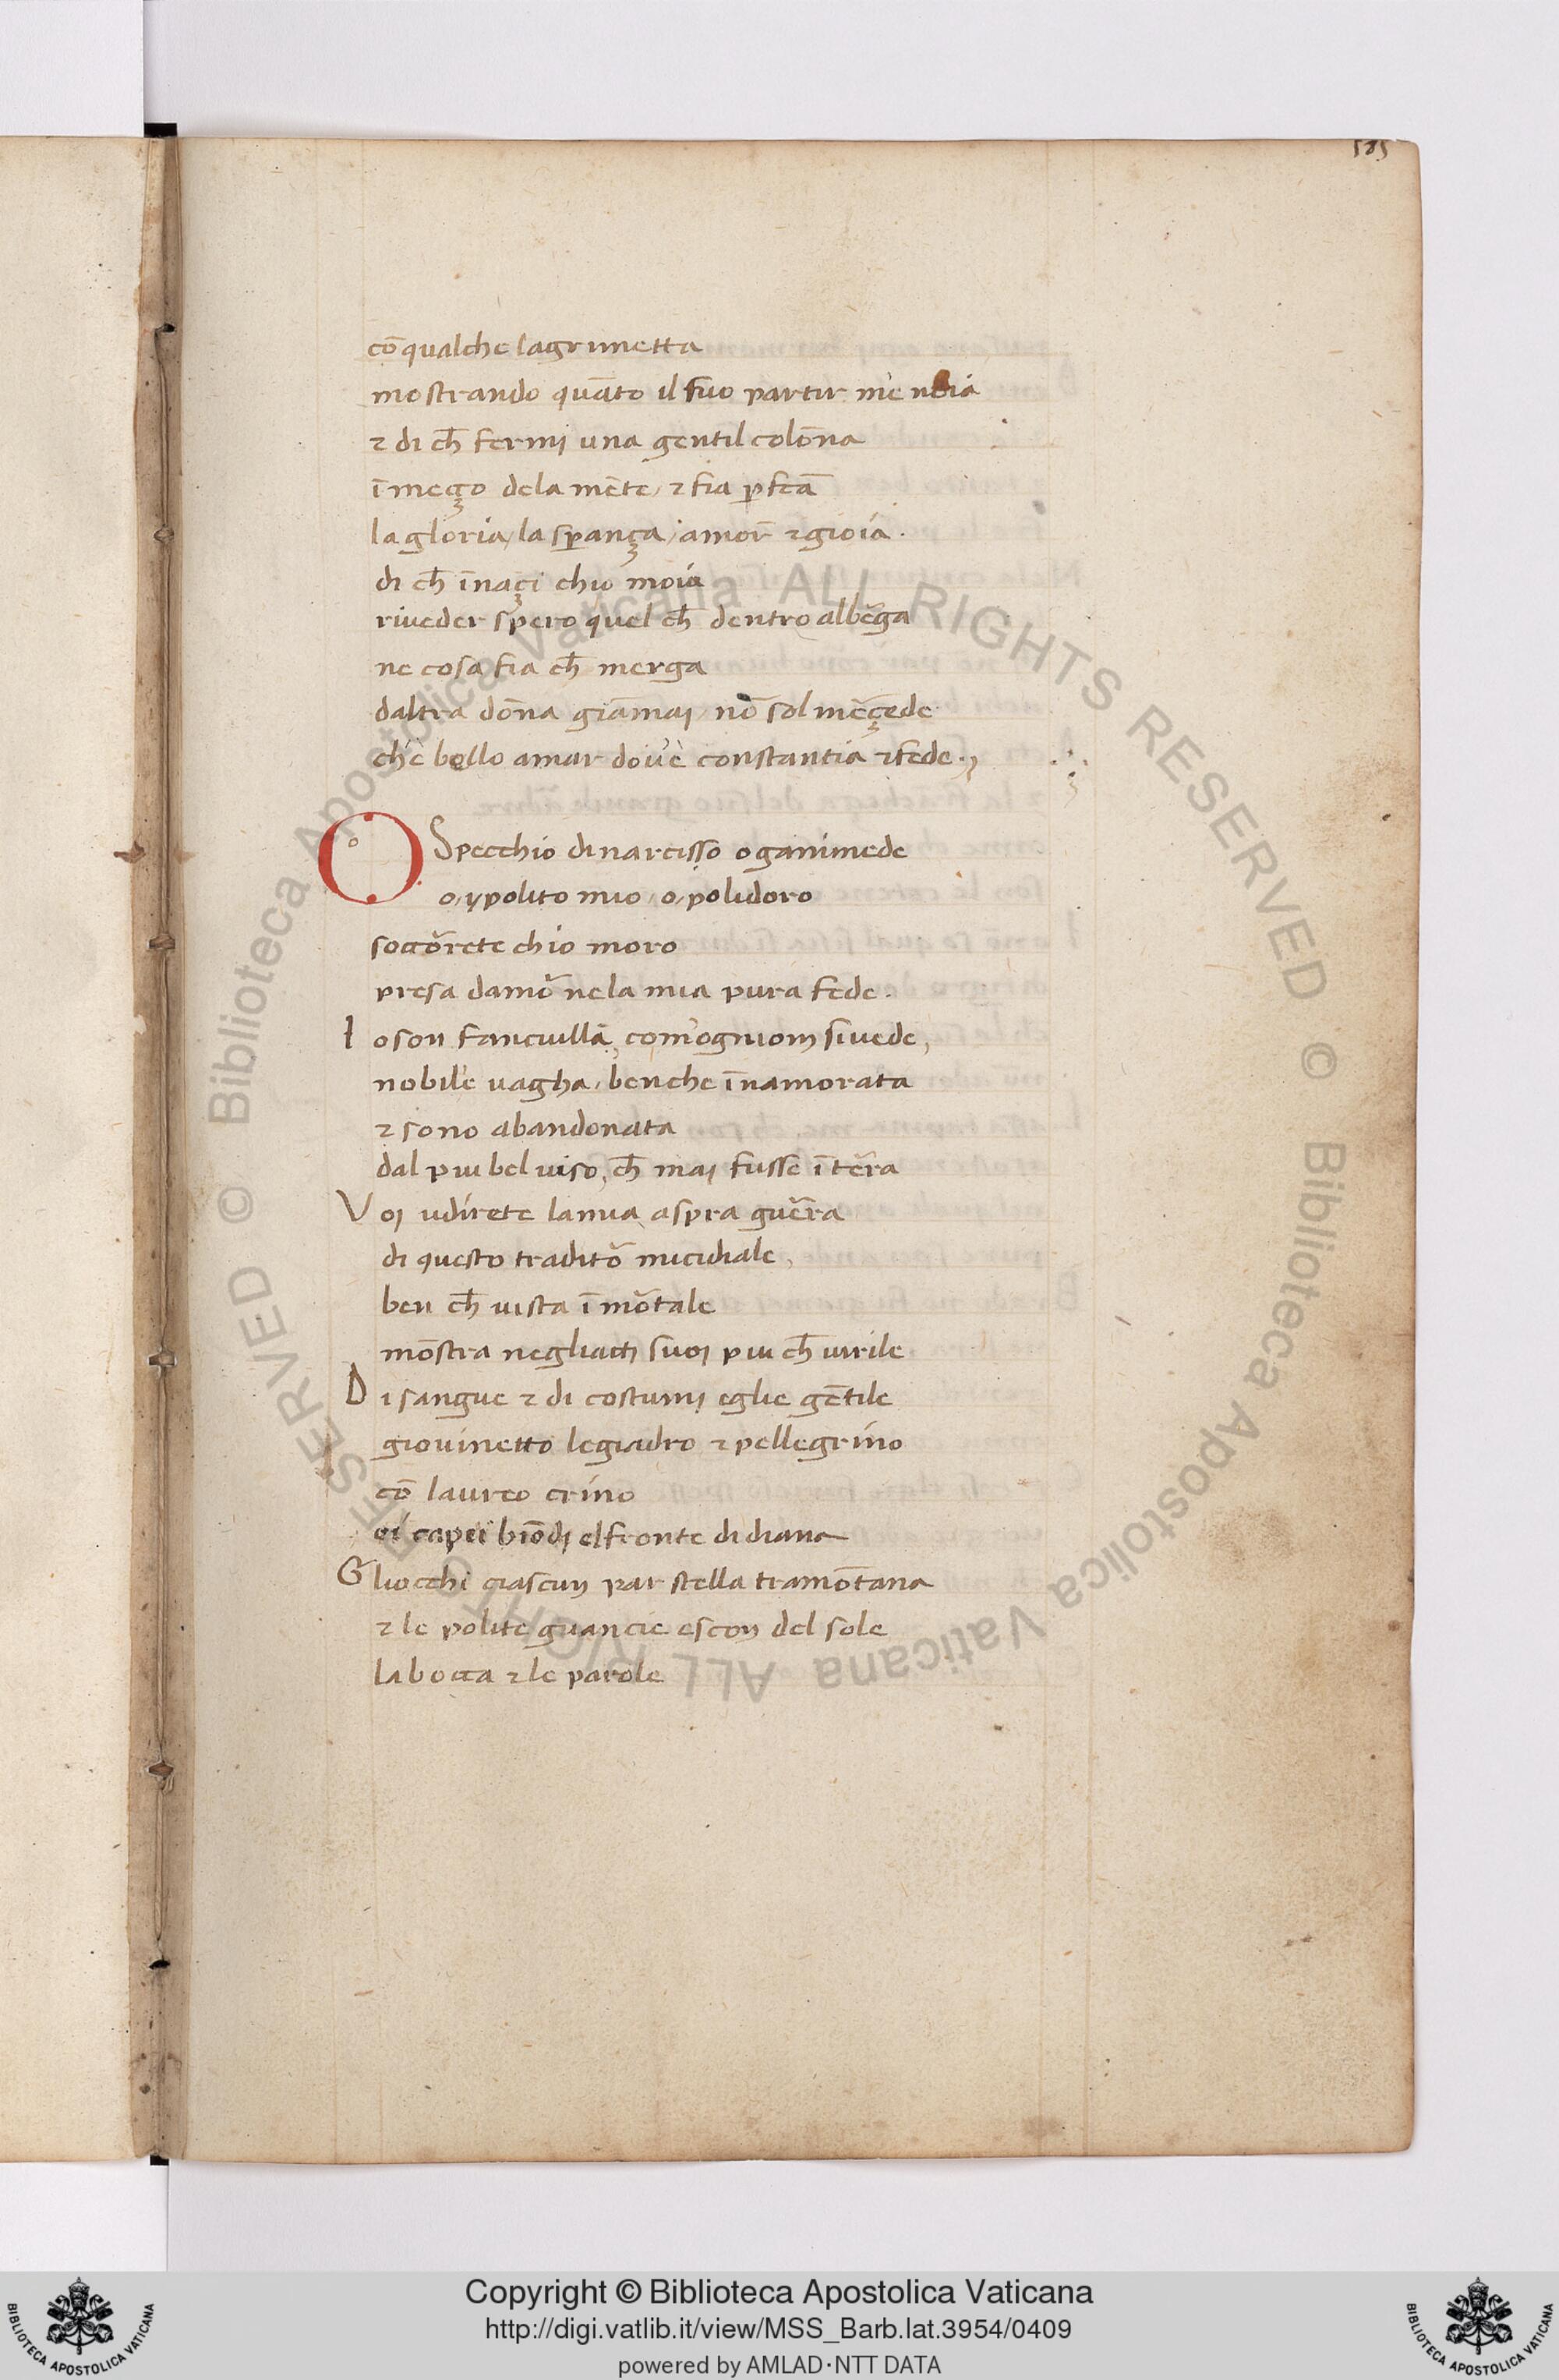 185
cō qualche lagrimetta
mostrando quāto il suo partir m'e noia
⁊ di ch̄ fermi una gentil colōna
ī meço dela mēte / ⁊ fia p̄ fēā
la gloria / la sp̄ança / amor̄ ⁊ gioia .
di ch̄ īnaçi chio moia
riueder spero quel ch̄ dentro albērga
ne cosa fia ch̄ merga
daltra dōna giāmai / nō sol mēçede
ch'è bello amar dou'è constantia ⁊ fede .
O Specchio di narcisso o ganimede
o / ypolito mio / o / polidoro
soccōrete chio moro
presa damō nela mia pura fede .
Io son fanciulla , com'ogniom si uede ,
nobil'e uagha / benche īnamorata
⁊ sono abandonata
dal piu bel uiso , ch̄ mai fusse ī tēra
Voi udirete la mia aspra guēra
di questo traditō micidiale ,
ben ch̄ uista ī mōtale
mōstra negliacti suoi piu ch̄ uirile
Di sangue ⁊ di costumi eglie gētile
giouinetto legiadro ⁊ pellegrino
cō laureo crino
ei capei biōdi el fronte di diana
Gliocchi ciascun par stella tramōtana
⁊ le polite guancie escon del sole
la bocca ⁊ le parole
Biblioteca Apostolica Vaticana ALL RIGHTS RESERVED ©
Biblioteca Apostolica Vaticana ALL RIGHTS RESERVED ©
Copyright © Biblioteca Apostolica Vaticana
http://digi.vatlib.it/view/MSS_Barb.lat.3954/0409
powered by AMLAD·NTT DATA
BIBLIOTECA APOSTOLICA VATICANA
BIBLIOTECA APOSTOLICA VATICANA